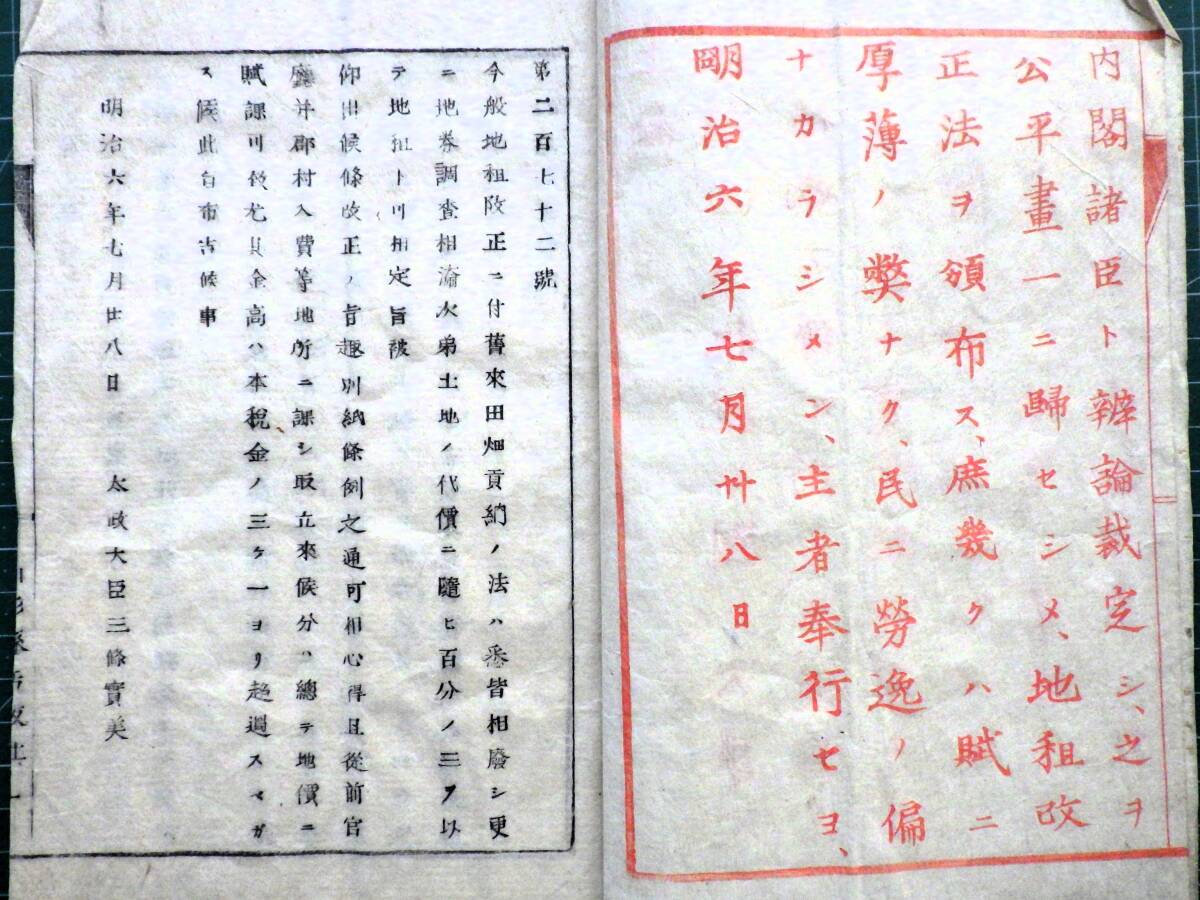 内閣諸臣ト辨論裁定シ、之ヲ
公平畫一ニ歸セシメ、地租改
正法ヲ頒布ス、庶幾クハ賦ニ
厚薄ノ弊ナク、民ニ勞逸ノ偏
ナカラシメン、主者奉行セヨ、
明治六年七月廿八日
第二百七十二號
今般地租改正ニ付舊來田畑貢納ノ法ハ悉皆相廢シ更
ニ地券調査相濟次第土地ノ代價ニ隨ヒ百分ノ三ヲ以
テ地租ト可相定旨被
仰出候條改正ノ旨趣別紙條例之通可相心得且從前官
廳并郡村入費等地所ニ課シ取立來候分ハ總テ地價ニ
賦課可致尤其金高ハ本税金ノ三ケ一ヨリ超過スマガ
ス候此旨布告候事
明治六年七月廿八日 太政大臣三條實美